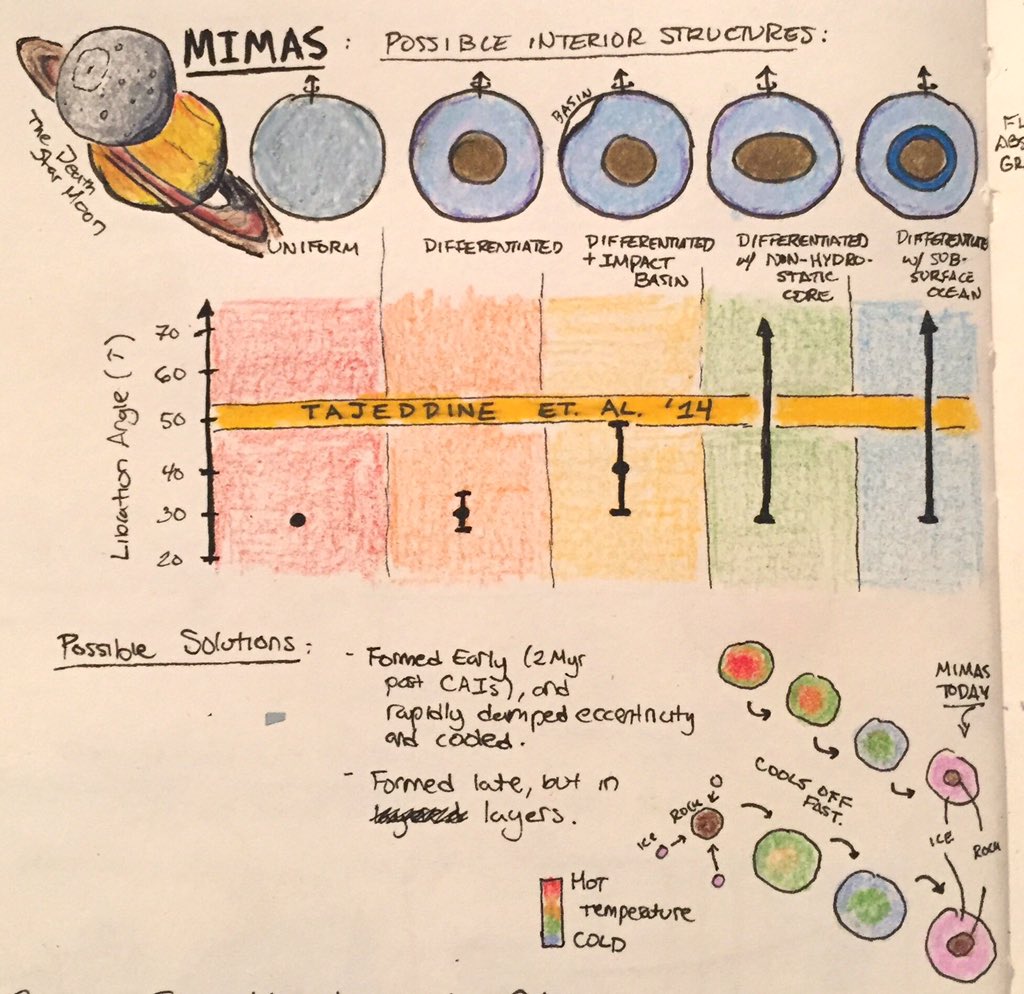 MIMAS : POSSIBLE INTERIOR STRUCTURES:
The Death
Star Moon
BASIN
UNIFORM
DIFFERENTIATED
DIFFERENTIATED
+ IMPACT
BASIN
DIFFERENTIATED
w/ NON-HYDRO-
STATIC
CORE
DIFFERENTIATE
w/ SUB-
SURFACE
OCEAN
FL
ABS
GR
Libration Angle (')
70
60
50
40
30
20
TAJEDDINE ET. AL. '14
Possible Solutions:
- Formed Early (2 Myr
post CAIs), and
rapidly damped eccentricity
and cooled.
- Formed late, but in
layers.
MIMAS
TODAY
COOLS OFF
FAST.
ICE
ROCK
ICE
ROCK
HOT
Temperature
COLD